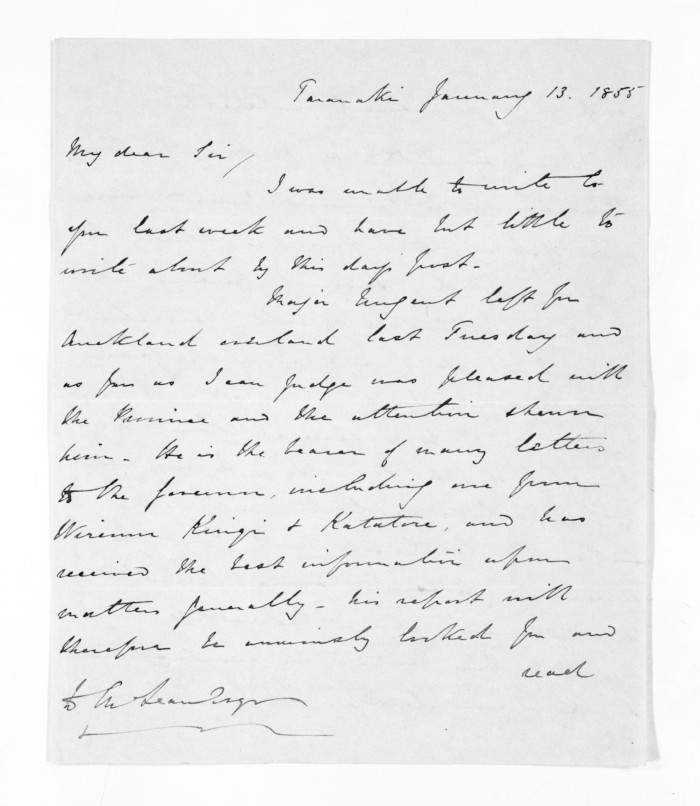 Taranaki January 13. 1855
My dear Sir,
I was unable to write to
you last week and have but little to
write about by this day's post.
Major Nugent left for
Auckland overland last Tuesday and
as far as I can judge was pleased with
the Province and the attention shewn
him. He is the bearer of many letters
to the Governor, including one from
Wiremu Kingi & Katatore, and has
received the best information upon
matters generally. his report will
therefore be anxiously looked for and
read
McLean Esqr